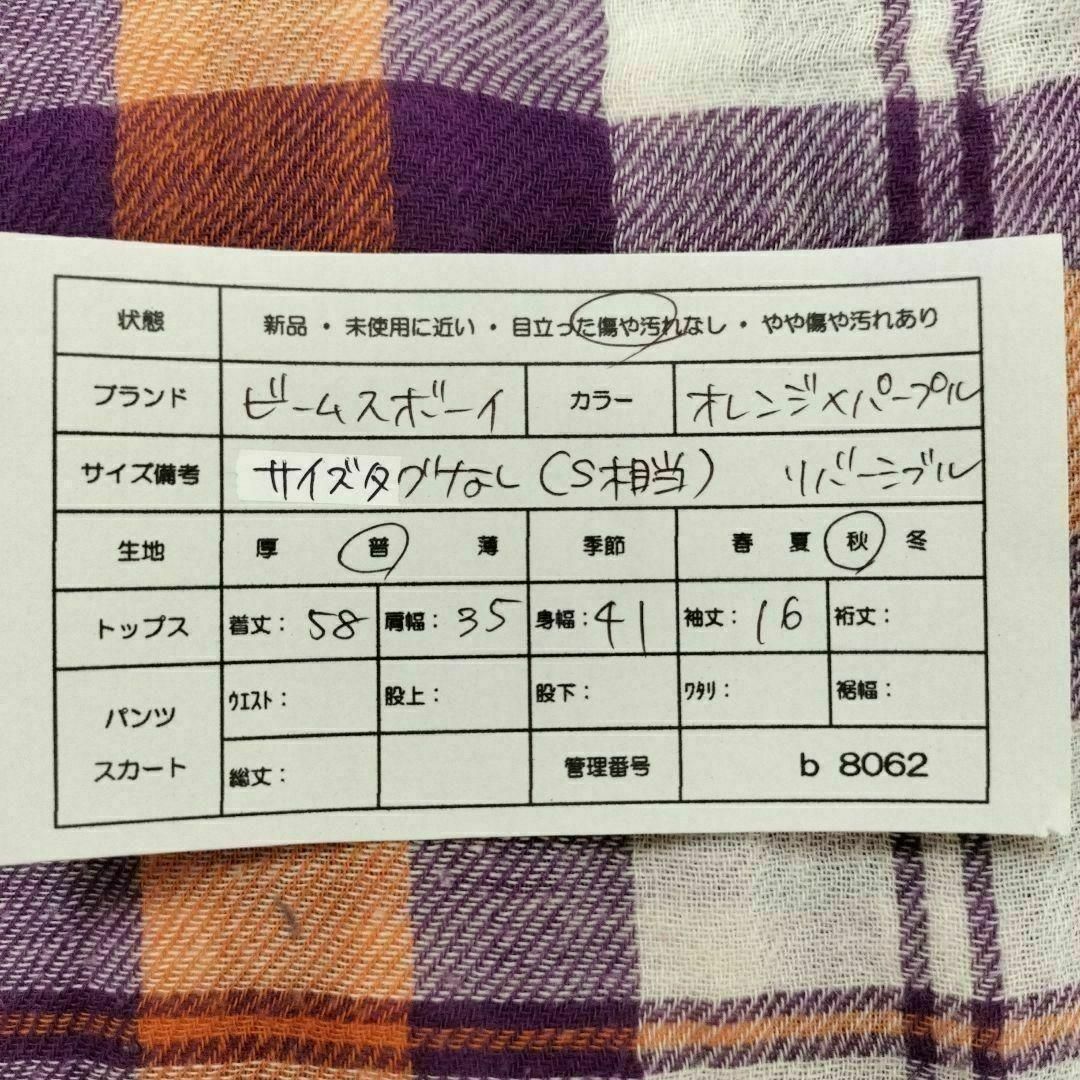 状態 新品・未使用に近い・目立った傷や汚れなし・やや傷や汚れあり
ブランド ビームスボーイ カラー オレンジ×パープル
サイズ備考 サイズタグなし(S相当) リバーシブル
生地 厚 普 薄 季節 春 夏 秋 冬
トップス 着丈: 58 肩幅: 35 身幅: 41 袖丈: 16 裄丈:
パンツ ウエスト: 股上: 股下: ワタリ: 裾幅:
スカート 総丈: 管理番号 b 8062